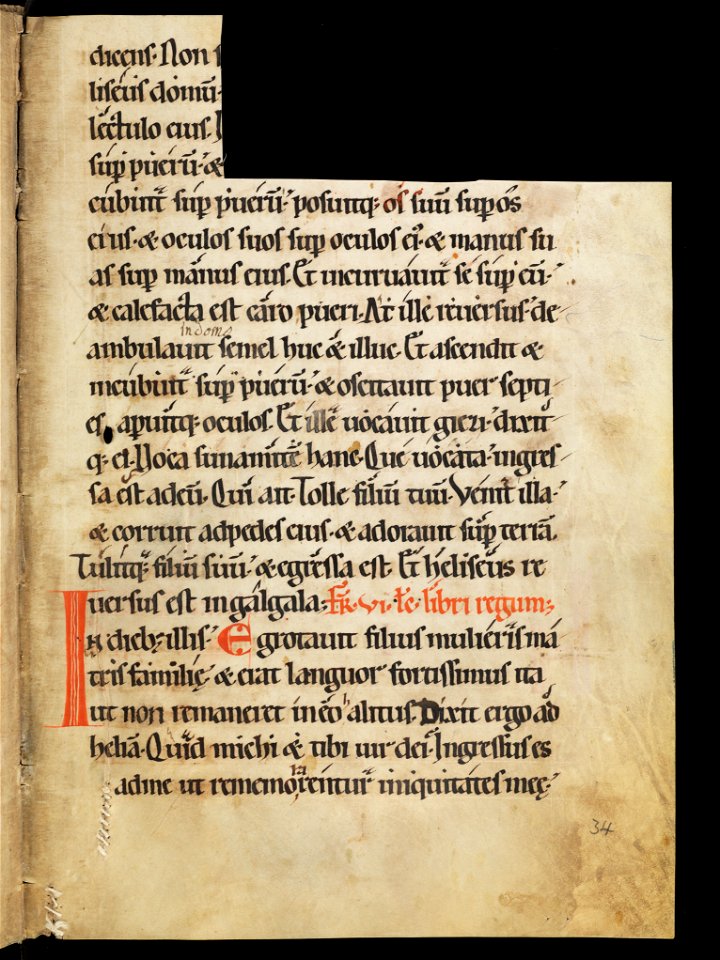 dicens· Non
liseus domū·
lectulo eius·
sup̄ puerū· &
cubuit᷒ sup̄ puerū· posuitq; os suū sup os
eius· & oculos suos sup̄ oculos ei᷒· & manus su
as sup̄ manus eius· Et incuruauit᷒ se sup̄ eū·
& calefacta est caro pueri· At ille reuersus· de
in domo
ambulauit semel huc & illuc· Et ascendit &
incubuit᷒ sup̄ puerū· & oscitauit puer septi
es· aperuitq; oculos· Et ille uocauit giezi· dixit
q; ei· Voca sunamitē hanc· Que uocata· ingres
sa est adeū· Qui ait· Tolle filiū tuū· Venit illa·
& corruit adpedes eius· & adorauit sup̄ terrā·
Tulitq; filiū suū· & egressa est· Et heliseus re
uersus est ingalgala· Fr̄· vi· le· libri regum·
In dieb; illis· Egrotauit filius mulieris ma
tris familię· & erat languor fortissimus ita
ut non remaneret in eo halitus· Dixit ergo ad
heliā· Quid michi & tibi uir dei· Ingressus es
adme ut rememorarentur iniquitates meę·
34